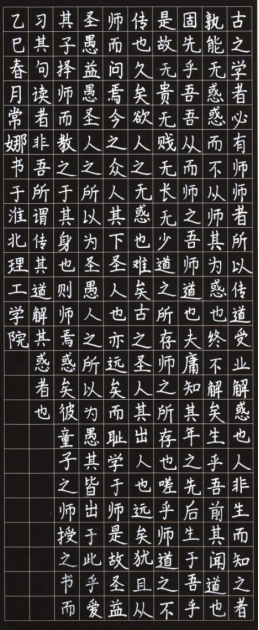 古之学者必有师师者所以传道受业解惑也人非生而知之者
孰能无惑惑而不从师其为惑也终不解矣生乎吾前其闻道也
固先乎吾吾从而师之吾师道也夫庸知其年之先后生于吾乎
是故无贵无贱无长无少道之所存师之所存也嗟乎师道之不
传也久矣欲人之无惑也难矣古之圣人其出人也远矣犹且从
师而问焉今之众人其下圣人也亦远矣而耻学于师是故圣益
圣愚益愚圣人之所以为圣愚人之所以为愚其皆出于此乎爱
其子择师而教之于其身也则师焉惑矣彼童子之师授之书而
习其句读者非吾所谓传其道解其惑者也
乙巳春月常娜书于淮北理工学院